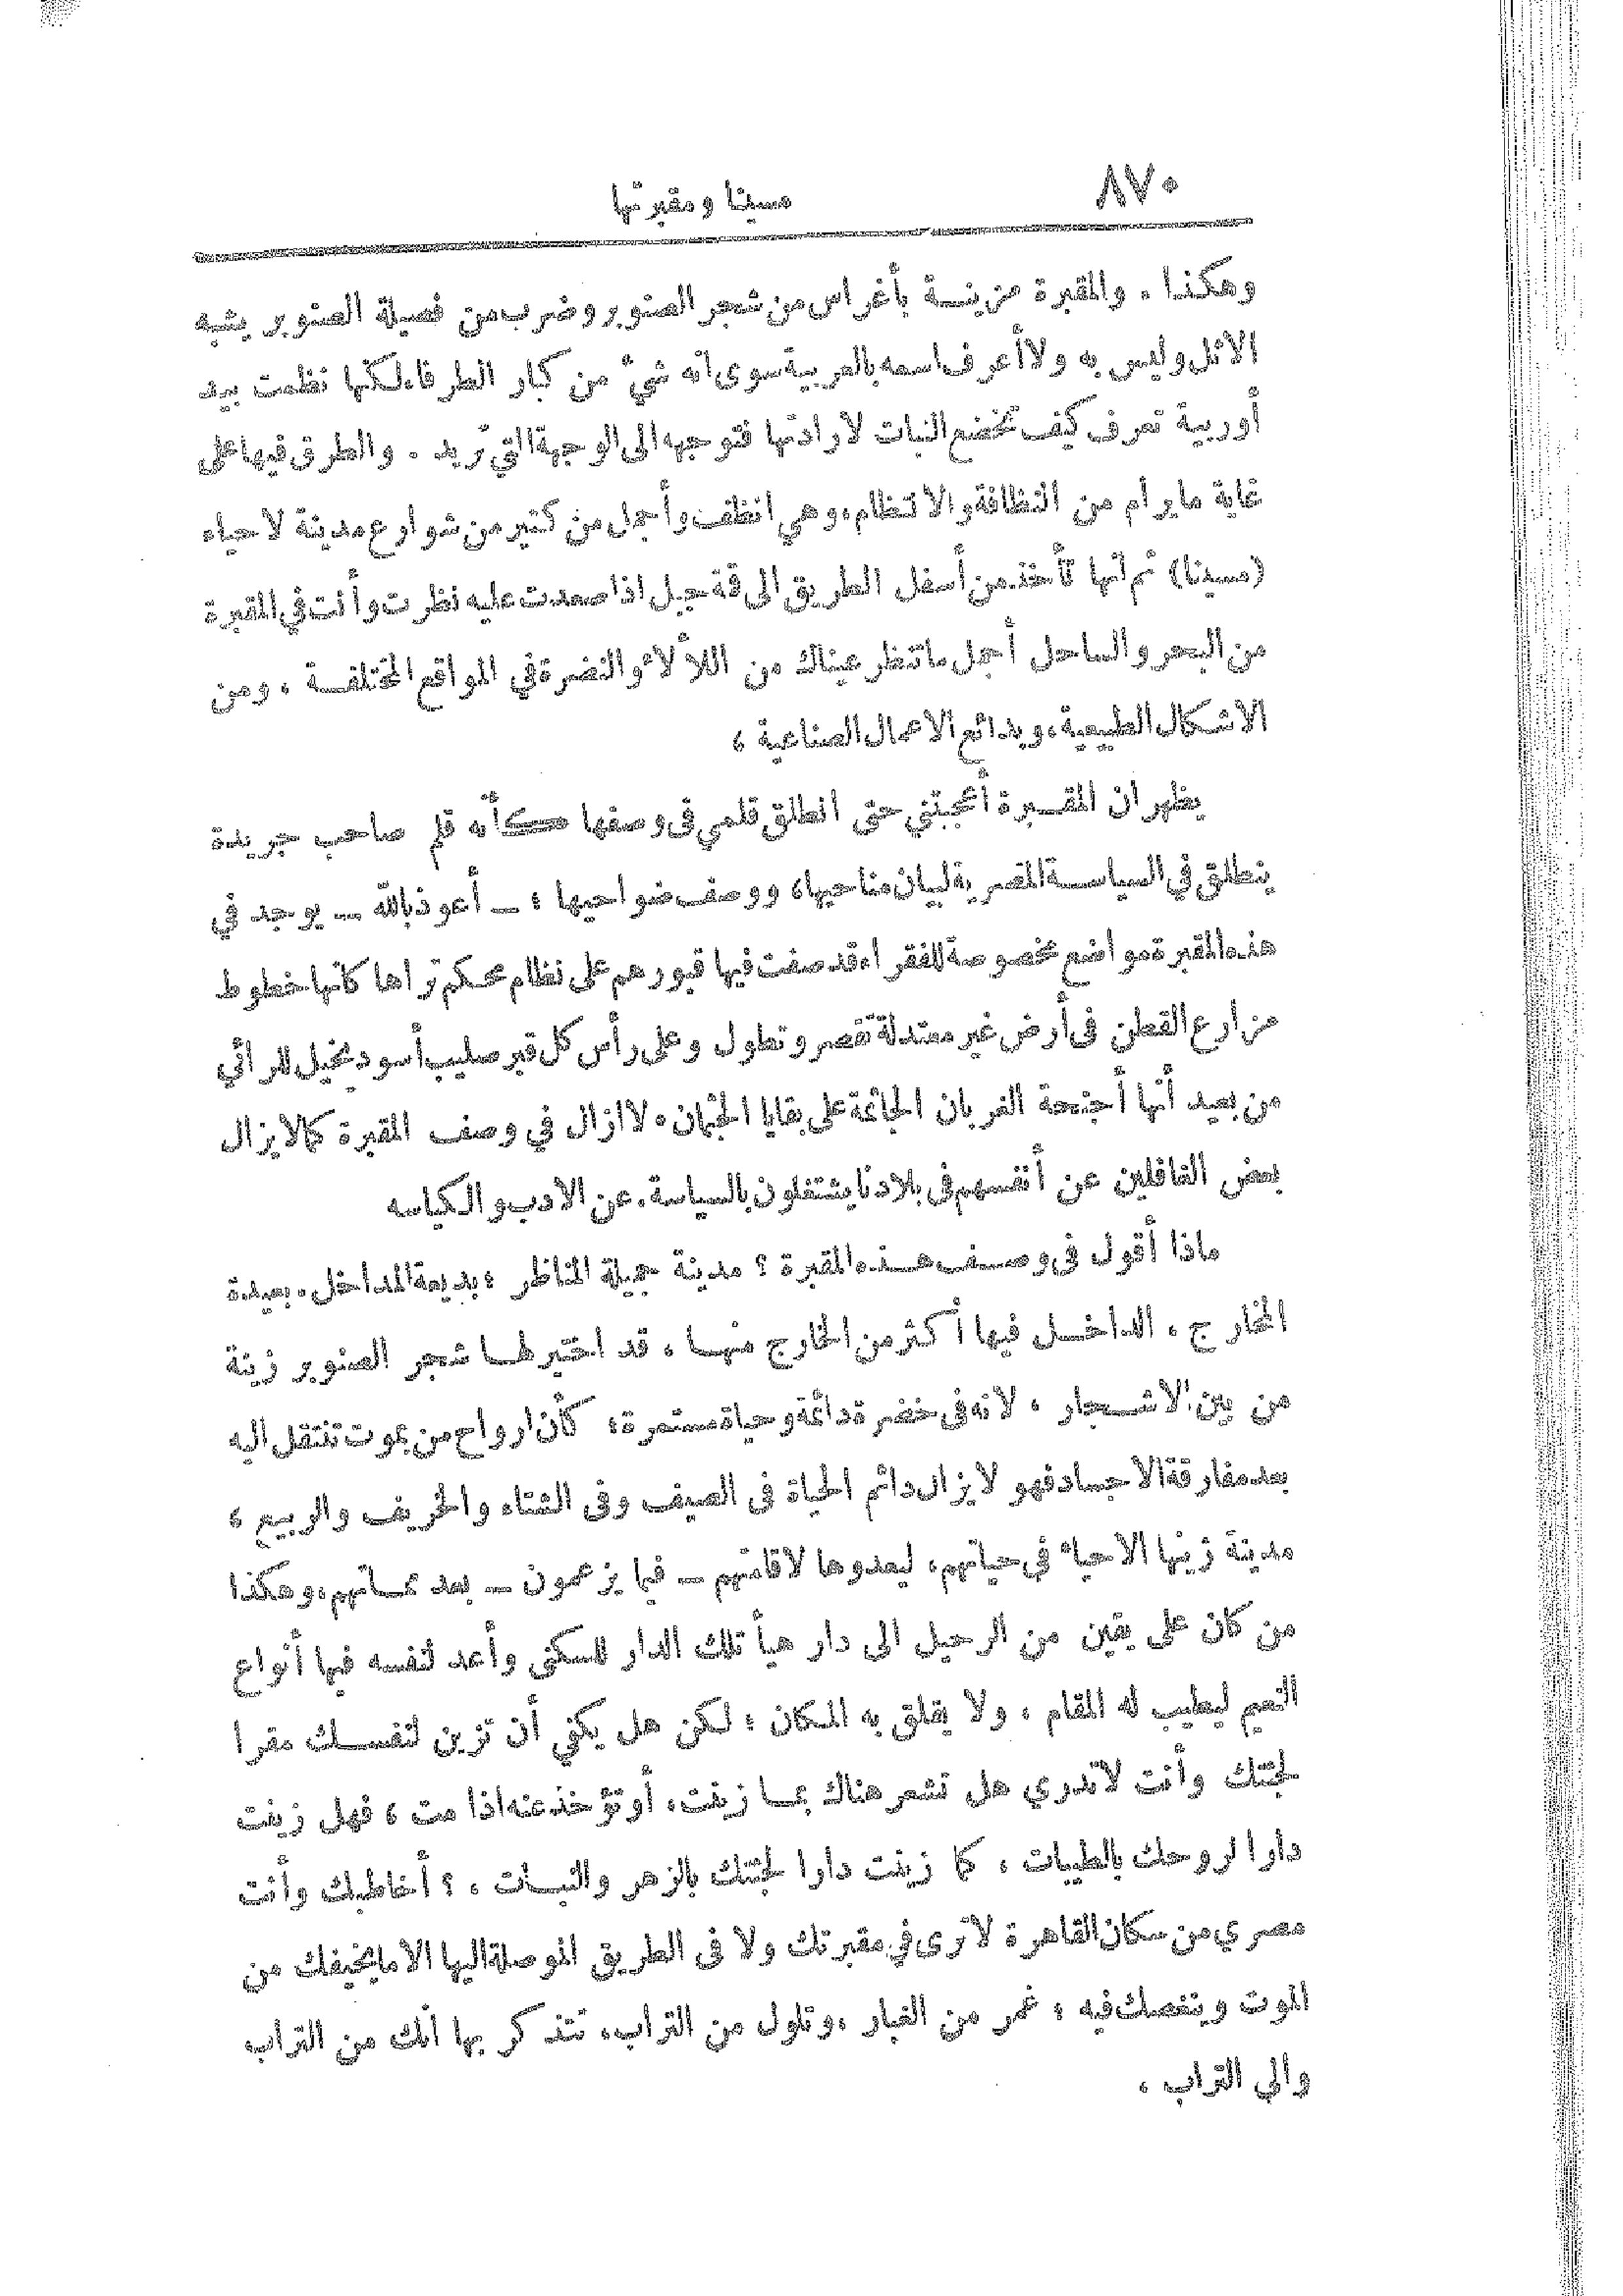 ٨٧٠
مسينا ومقبرتها
وهكذا . والمقبرة مزينة بأغراس من شجر الصنوبر وضرب من فصيلة الصنوبر يشبه
الاثل وليس به ولا أعرف اسمه بالعربية سوى انه شيء من كبار الطرفاء لكنها نظمت بيد
أوربية تعرف كيف تخضع النبات لارادتها فتوجهه الى الوجهة التي تريد . والطرق فيها على
غاية ما يرام من النظافة والانتظام، وهي انظف وأجمل من كثير من شوارع مدينة لاحياء
(مسينا) ثم انها تأخذ من أسفل الطريق الى قمة جبل اذا صعدت عليه نظرت وأنت في المقبرة
من البحر والساحل أجمل ما تنظر عيناك من اللألاء والنضرة في المواقع المختلفة ، ومن
الاشكال الطبيعية، وبدائع الاعمال الصناعية ،
يظهر ان المقبرة أعجبتني حتى انطلق قلمي في وصفها كأنه قلم صاحب جريدة
ينطلق في السياسة المصرية لبيان مناحيها، ووصف ضواحيها ؛ ـ أعوذ بالله ـ يوجد في
هذه المقبرة مواضع مخصوصة للفقراء قد صفت فيها قبورهم على نظام محكم تراها كأنها خطوط
مزارع القطن في أرض غير معتدلة تقصر وتطول وعلى رأس كل قبر صليب أسود يخيل للرائي
من بعيد أنها أجنحة الغربان الجاثمة على بقايا الجثمان. لا ازال في وصف المقبرة كما لا يزال
بعض الغافلين عن أنفسهم في بلادنا يشتغلون بالسياسة. عن الادب والكياسه
ماذا أقول في وصف هذه المقبرة ؟ مدينة جميلة المناظر ، بديعة المداخل، بعيدة
المخارج ، الداخل فيها أكثر من الخارج منها ، قد اختير لها شجر الصنوبر زينة
من بين الاشجار ، لانه في خضرة دائمة وحياة مستمرة، كأن ارواح من يموت تنتقل اليه
بعد مفارقة الاجساد فهو لا يزال دائم الحياة في الصيف وفي الشتاء والخريف والربيع ،
مدينة زينها الاحياء في حياتهم، ليعدوها لاقامتهم ـ فيما يزعمون ـ بعد مماتهم، وهكذا
من كان على يقين من الرحيل الى دار هيأ تلك الدار للسكنى وأعد لنفسه فيها أنواع
النعيم ليطيب له المقام ، ولا يقلق به المكان ؛ لكن هل يكفي أن تزين لنفسك مقرا
لجثتك وأنت لا تدري هل تشعر هناك بما زينت، أو تؤخذ عنه اذا مت ، فهل زينت
دارا لروحك بالطيبات ، كما زينت دارا لجثتك بالزهر والنبات ، ؟ أخاطبك وأنت
مصري من سكان القاهرة لا ترى في مقبرتك ولا في الطريق الموصلة اليها الا ما يخيفك من
الموت وينغصك فيه ؛ غمر من الغبار ، وتلول من التراب، تتذكر بها أنك من التراب
والي التراب ،